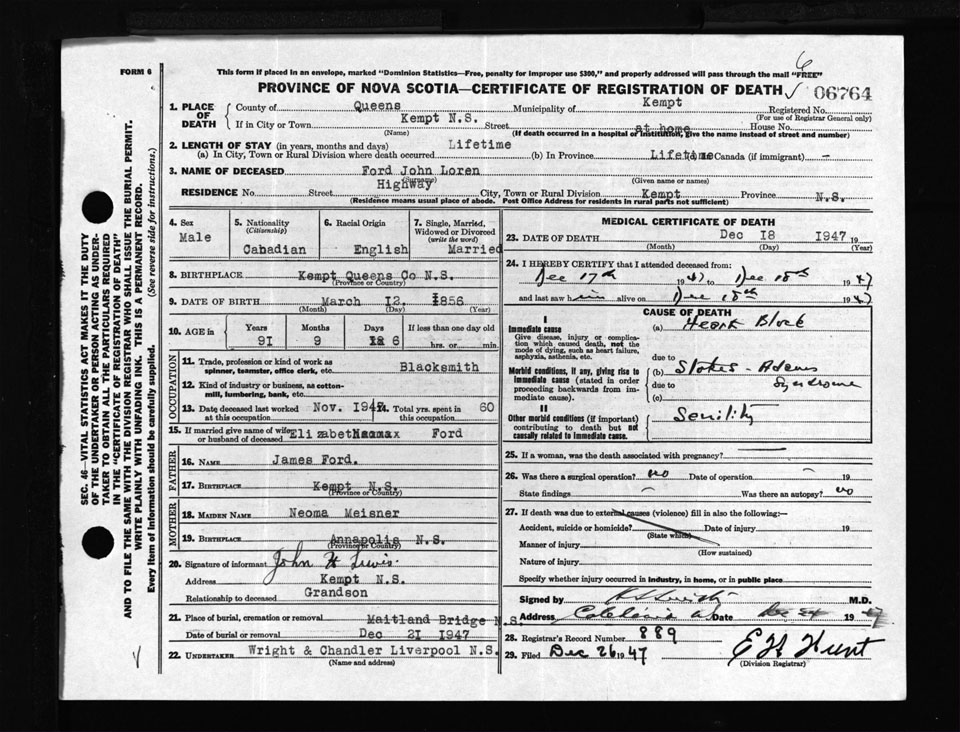 6
FORM 6
This form if placed in an envelope, marked "Dominion Statistics—Free, penalty for improper use $300," and properly addressed will pass through the mail "FREE"
PROVINCE OF NOVA SCOTIA—CERTIFICATE OF REGISTRATION OF DEATH √ 06764
1. PLACE OF DEATH
County of Queens Municipality of Kempt Registered No.
(For use of Registrar General only)
If in City or Town Kempt N.S. Street at home House No.
(Name) (If death occurred in a hospital or institution, give the name instead of street and number)
2. LENGTH OF STAY (in years, months and days) Lifetime
(a) In City, Town or Rural Division where death occurred (b) In Province Lifetime Canada (if immigrant) —
3. NAME OF DECEASED Ford John Loren
(Surname) (Given name or names)
RESIDENCE No. Street Highway City, Town or Rural Division Kempt Province N.S.
(Residence means usual place of abode. Post Office Address for residents in rural parts not sufficient)
4. Sex Male
5. Nationality (Citizenship) Cabadian
6. Racial Origin English
7. Single, Married, Widowed or Divorced (write the word) Married
8. BIRTHPLACE Kempt Queens Co N.S.
(Province or Country)
9. DATE OF BIRTH March 12. 1856
(Month) (Day) (Year)
10. AGE in Years 91 Months 9 Days 6 If less than one day old hrs. or min.
OCCUPATION
11. Trade, profession or kind of work as spinner, teamster, office clerk, etc. Blacksmith
12. Kind of industry or business, as cotton-mill, lumbering, bank, etc.
13. Date deceased last worked at this occupation Nov. 1947 14. Total yrs. spent in this occupation 60
15. If married give name of wife or husband of deceased Elizabeth Ford
FATHER
16. NAME James Ford.
17. BIRTHPLACE Kempt N.S.
(Province or Country)
MOTHER
18. MAIDEN NAME Neoma Meisner
19. BIRTHPLACE Annapolis N.S.
(Province or Country)
20. Signature of informant John H Lewis.
Address Kempt N.S.
Relationship to deceased Grandson
21. Place of burial, cremation or removal Maitland Bridge N.S.
Date of burial or removal Dec 21 1947
22. UNDERTAKER Wright & Chandler Liverpool N.S.
(Name and address)
MEDICAL CERTIFICATE OF DEATH
23. DATE OF DEATH Dec 18 1947 19
(Month) (Day) (Year)
24. I HEREBY CERTIFY that I attended deceased from:
Dec 17th 1947 to Dec 18th 1947
and last saw him alive on Dec 18th 1947
CAUSE OF DEATH
I
Immediate cause
Give disease, injury or complication which caused death, not the mode of dying, such as heart failure, asphyxia, asthenia, etc.
(a) Heart Block
due to
Morbid conditions, if any, giving rise to immediate cause (stated in order proceeding backwards from immediate cause).
(b) Stokes-Adams Syndrome
due to
(c)
II
Other morbid conditions (if important) contributing to death but not causally related to immediate cause.
Senility
25. If a woman, was the death associated with pregnancy?
26. Was there a surgical operation? no Date of operation — 19
State findings — Was there an autopsy? no
27. If death was due to external causes (violence) fill in also the following:—
Accident, suicide or homicide? Date of injury 19
(State which)
Manner of injury
(How sustained)
Nature of injury
Specify whether injury occurred in industry, in home, or in public place
Signed by M.D.
Address Date Dec 24 1947
28. Registrar's Record Number 889
29. Filed Dec 26 1947 E H Hunt
(Division Registrar)
SEC. 46—VITAL STATISTICS ACT MAKES IT THE DUTY
OF THE UNDERTAKER OR PERSON ACTING AS UNDER-
TAKER TO OBTAIN ALL THE PARTICULARS REQUIRED
IN THE "CERTIFICATE OF REGISTRATION OF DEATH"
AND TO FILE THE SAME WITH THE DIVISION REGISTRAR WHO SHALL ISSUE THE BURIAL PERMIT.
WRITE PLAINLY WITH UNFADING INK. THIS IS A PERMANENT RECORD.
Every item of information should be carefully supplied. (See reverse side for instructions.)